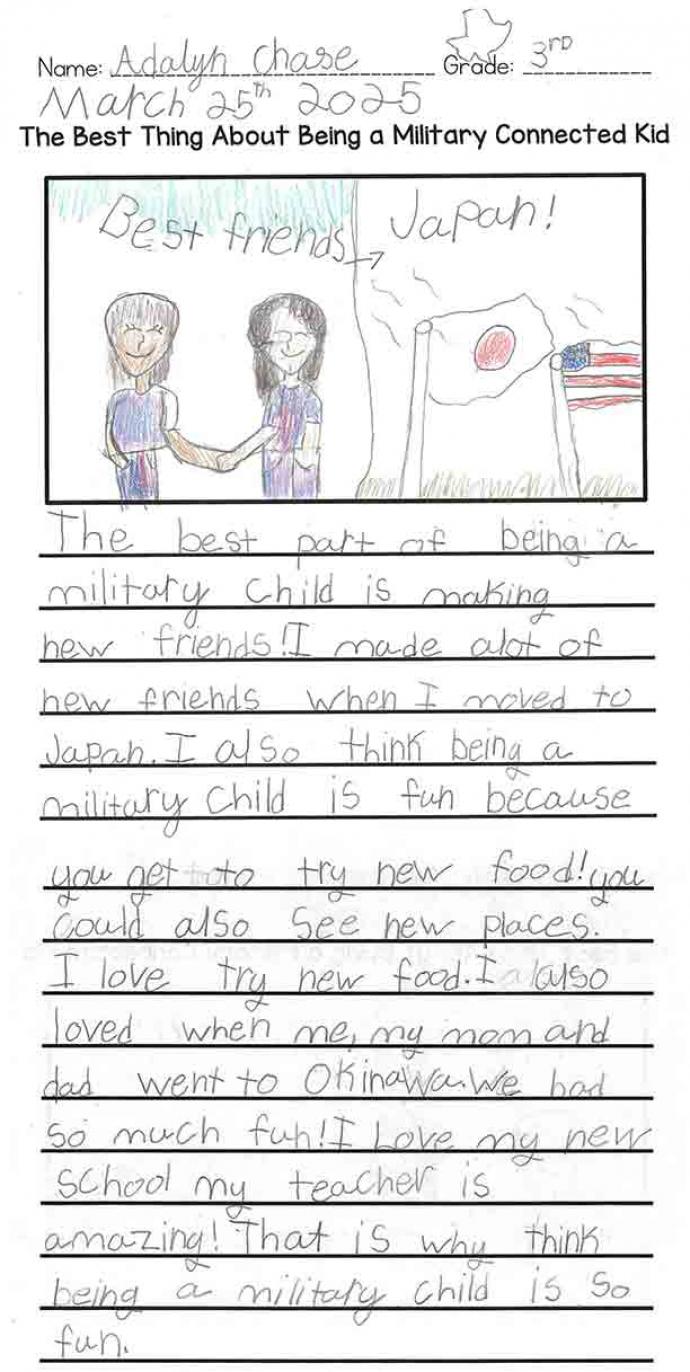 Name: Adalyn Chase Grade: 3rd
March 25th 2025
The Best Thing About Being a Military Connected Kid
Best friends → Japan!
The best part of being a
military child is making
new friends! I made alot of
new friends when I moved to
Japan. I also think being a
military child is fun because
you get to try new food! you
could also see new places.
I love try new food. I also
loved when me, my mom and
dad went to Okinawa. We had
so much fun! I Love my new
school my teacher is
amazing! That is why think
being a military child is so
fun.